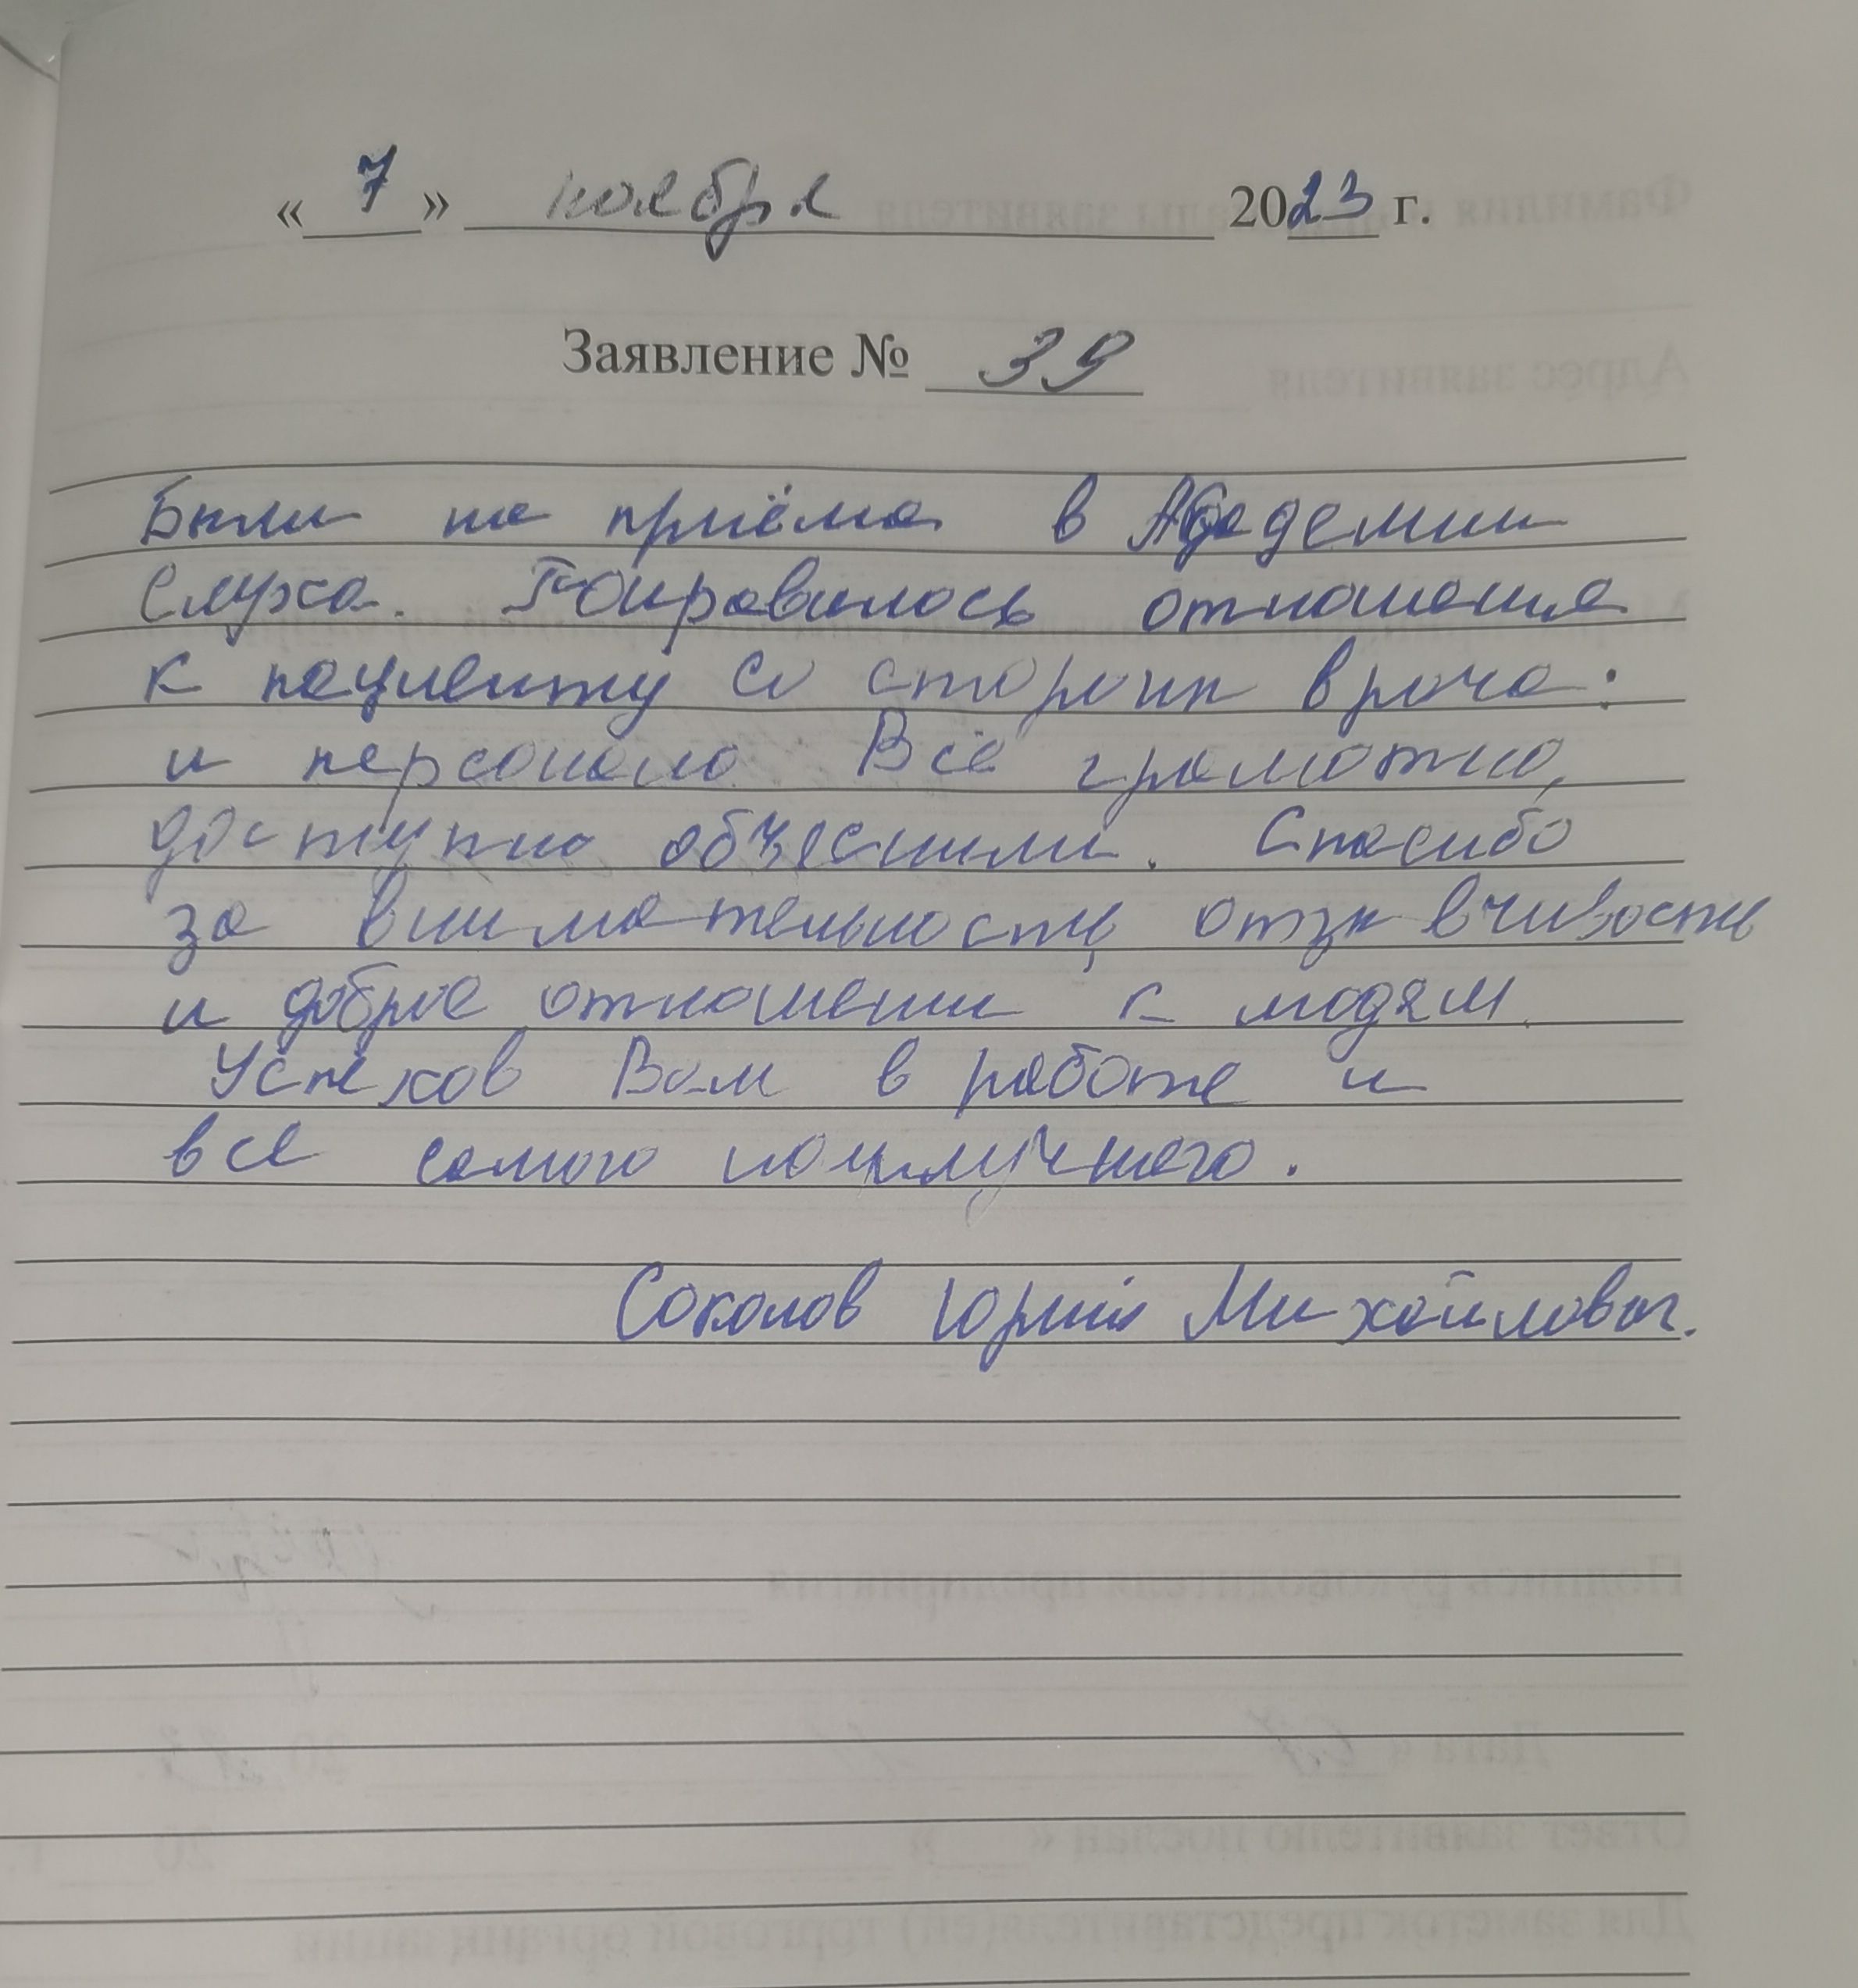 « 7 » ноября 2023 г.
Заявление № 39
Были на приёма в Академии
Слуха. Понравилось отношение
к пациенту со стороны врача:
и персонала. Всё грамотно,
доступно объяснили. Спасибо
за внимательность, отзывчивость
и доброе отношении к людям.
Успехов Вам в работе и
все самого наилучшего.
Соколов Юрий Михайлович.